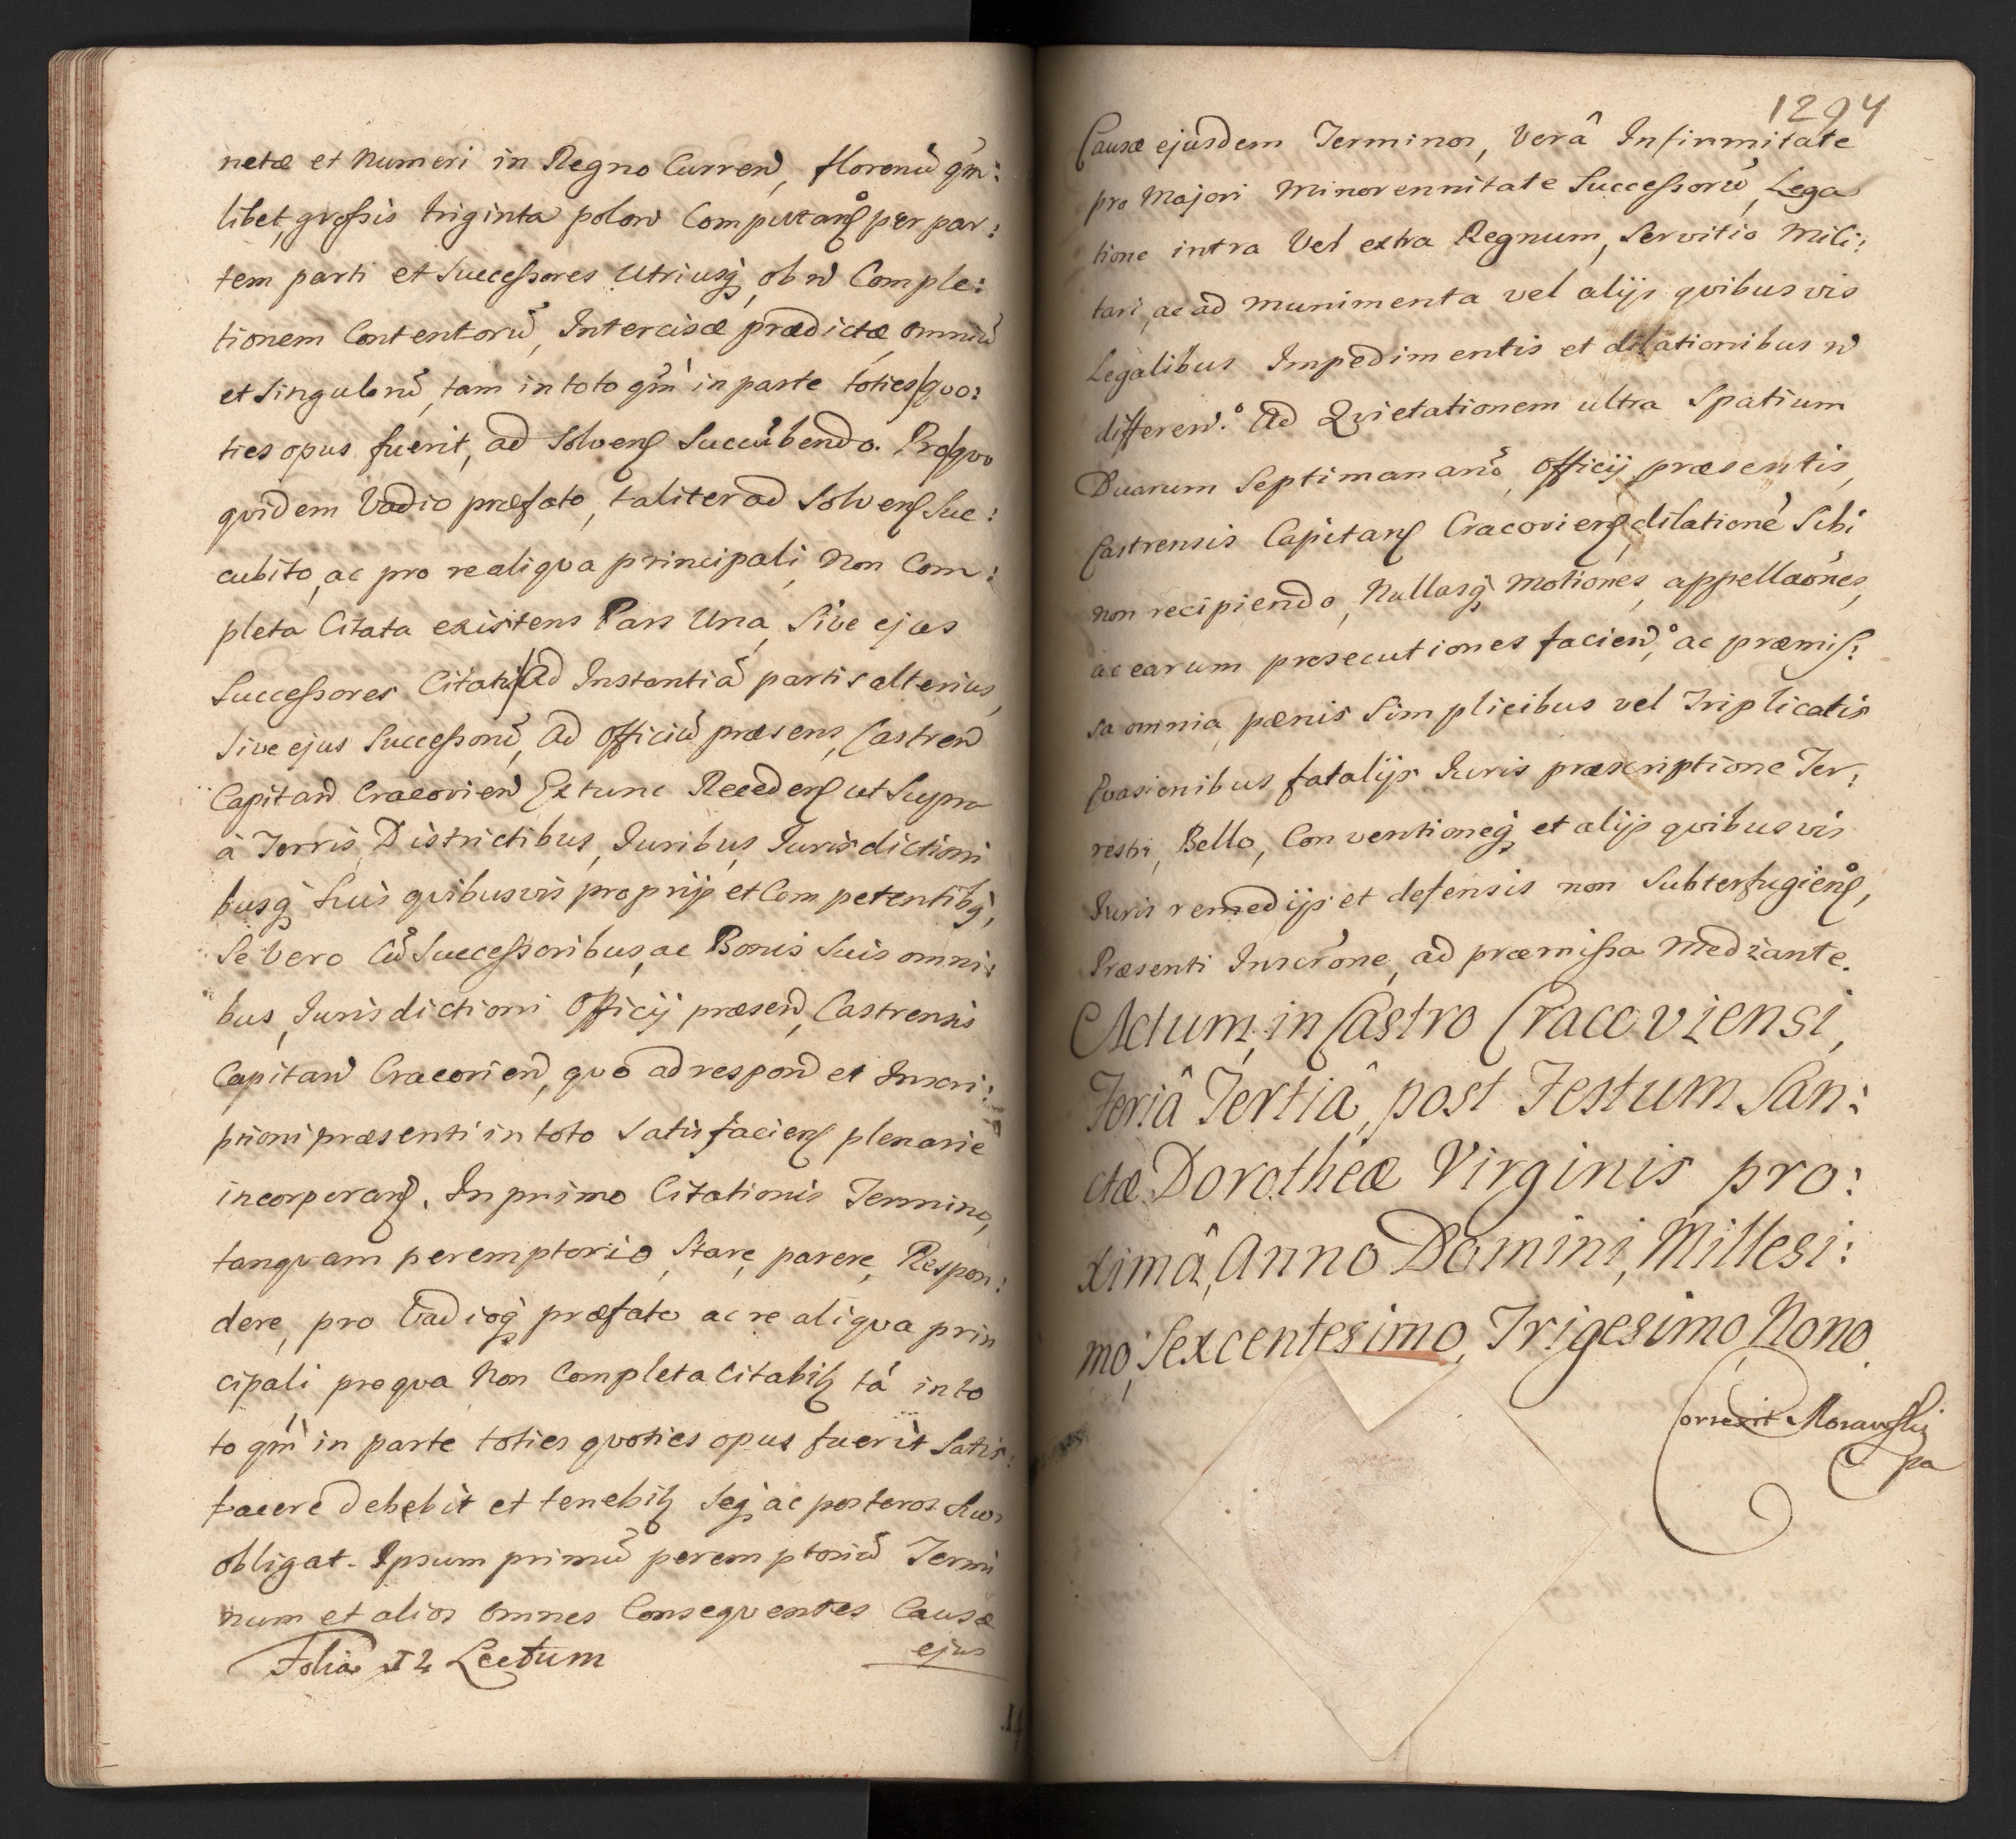 netæ et numeri in Regno Curren̄, florenū qm̄:
libet, grossis triginta polon̄ Computan̄ per par:
tem parti et Successores Utriusq́, ob n̄ Comple:
tionem Contentorū, Intercisæ prædictæ, omniū
et Singulorū, tam in toto qm̀ in parte toties quo:
ties opus fuerit, ad Solven̄ Succūbendo. Pro quo
quidem Vadio præfato, taliter ad Solven̄ Suc:
cubito, ac pro re aliqua principali, Non Com:
pleta Citata existens Pars Una, Sive ejus
Successores Citati, Ad Instantiā partis alterius,
Sive ejus Successorū, Ad Officiū præsens, Castren̄
Capitan̄ Cracovien̄ Ex tunc Receden̄ ut Supra
à Terris, Districtibus, Juribus, Jurisdictioni
busq́ Suis quibusvis proprijs et Competentibq́,
Se Vero Cū Successoribus, ac Bonis Suis omni:
bus, Jurisdictioni Officij præsen̄, Castrensis
Capitan̄ Cracovien̄, quo ad respon̄ et Inscri:
ptioni præsenti in toto Satisfacien̄ plenarie
incorporan̄. In primo Citationis Termino,
tanquam peremptorio, Stare, parere, Respon:
dere, pro Vadioq́ præfato ac re aliqua prin
cipali pro qua Non Completa Citabit̄ tā in to
to qm̀ in parte toties quoties opus fuerit Satis:
facere debebit et tenebit̄ Seq́ ac posteros Suos
obligat. Ipsum primū peremptoriū Termi
num et alios omnes Consequentes Causæ
ejus
Folia 12 Lectum
14
1294
Causæ ejusdem Terminos, Verâ Infirmitate
pro Majori Minorennitate Successorū, Lega
tione intra Vel extra Regnum, Servitio Mili:
tari, ac ad munimenta vel alijs quibusvis
Legalibus Impedimentis et dilationibus n̄
differen̄.° Ad Quietationem ultra Spatium
Duarum Septimanarū, Officij præsentis,
Castrensis Capitan̄ Cracovien̄, dilationē Sibi
non recipiendo, Nullasq́ Motiones, appellaōnes,
ac earum prosecutiones facien̄,° ac præmis:
sa omnia pænis Simplicibus vel Triplicatis
Evasionibus fatalijs Juris præscriptione Ter:
restri, Bello, Conventioneq́ et alijs quibusvis
Juris remedijs et defensis non Subterfugien̄,
Præsenti Inscr̄one, ad præmissa Mediante.
Actum in Castro Cracoviensi,
Feriâ Tertiâ, post Festum San:
ctæ Dorotheæ Virginis pro:
ximâ, Anno Domini, Millesi:
mo, Sexcentesimo, Trigesimo Nono.
Correxit Morawski
pa